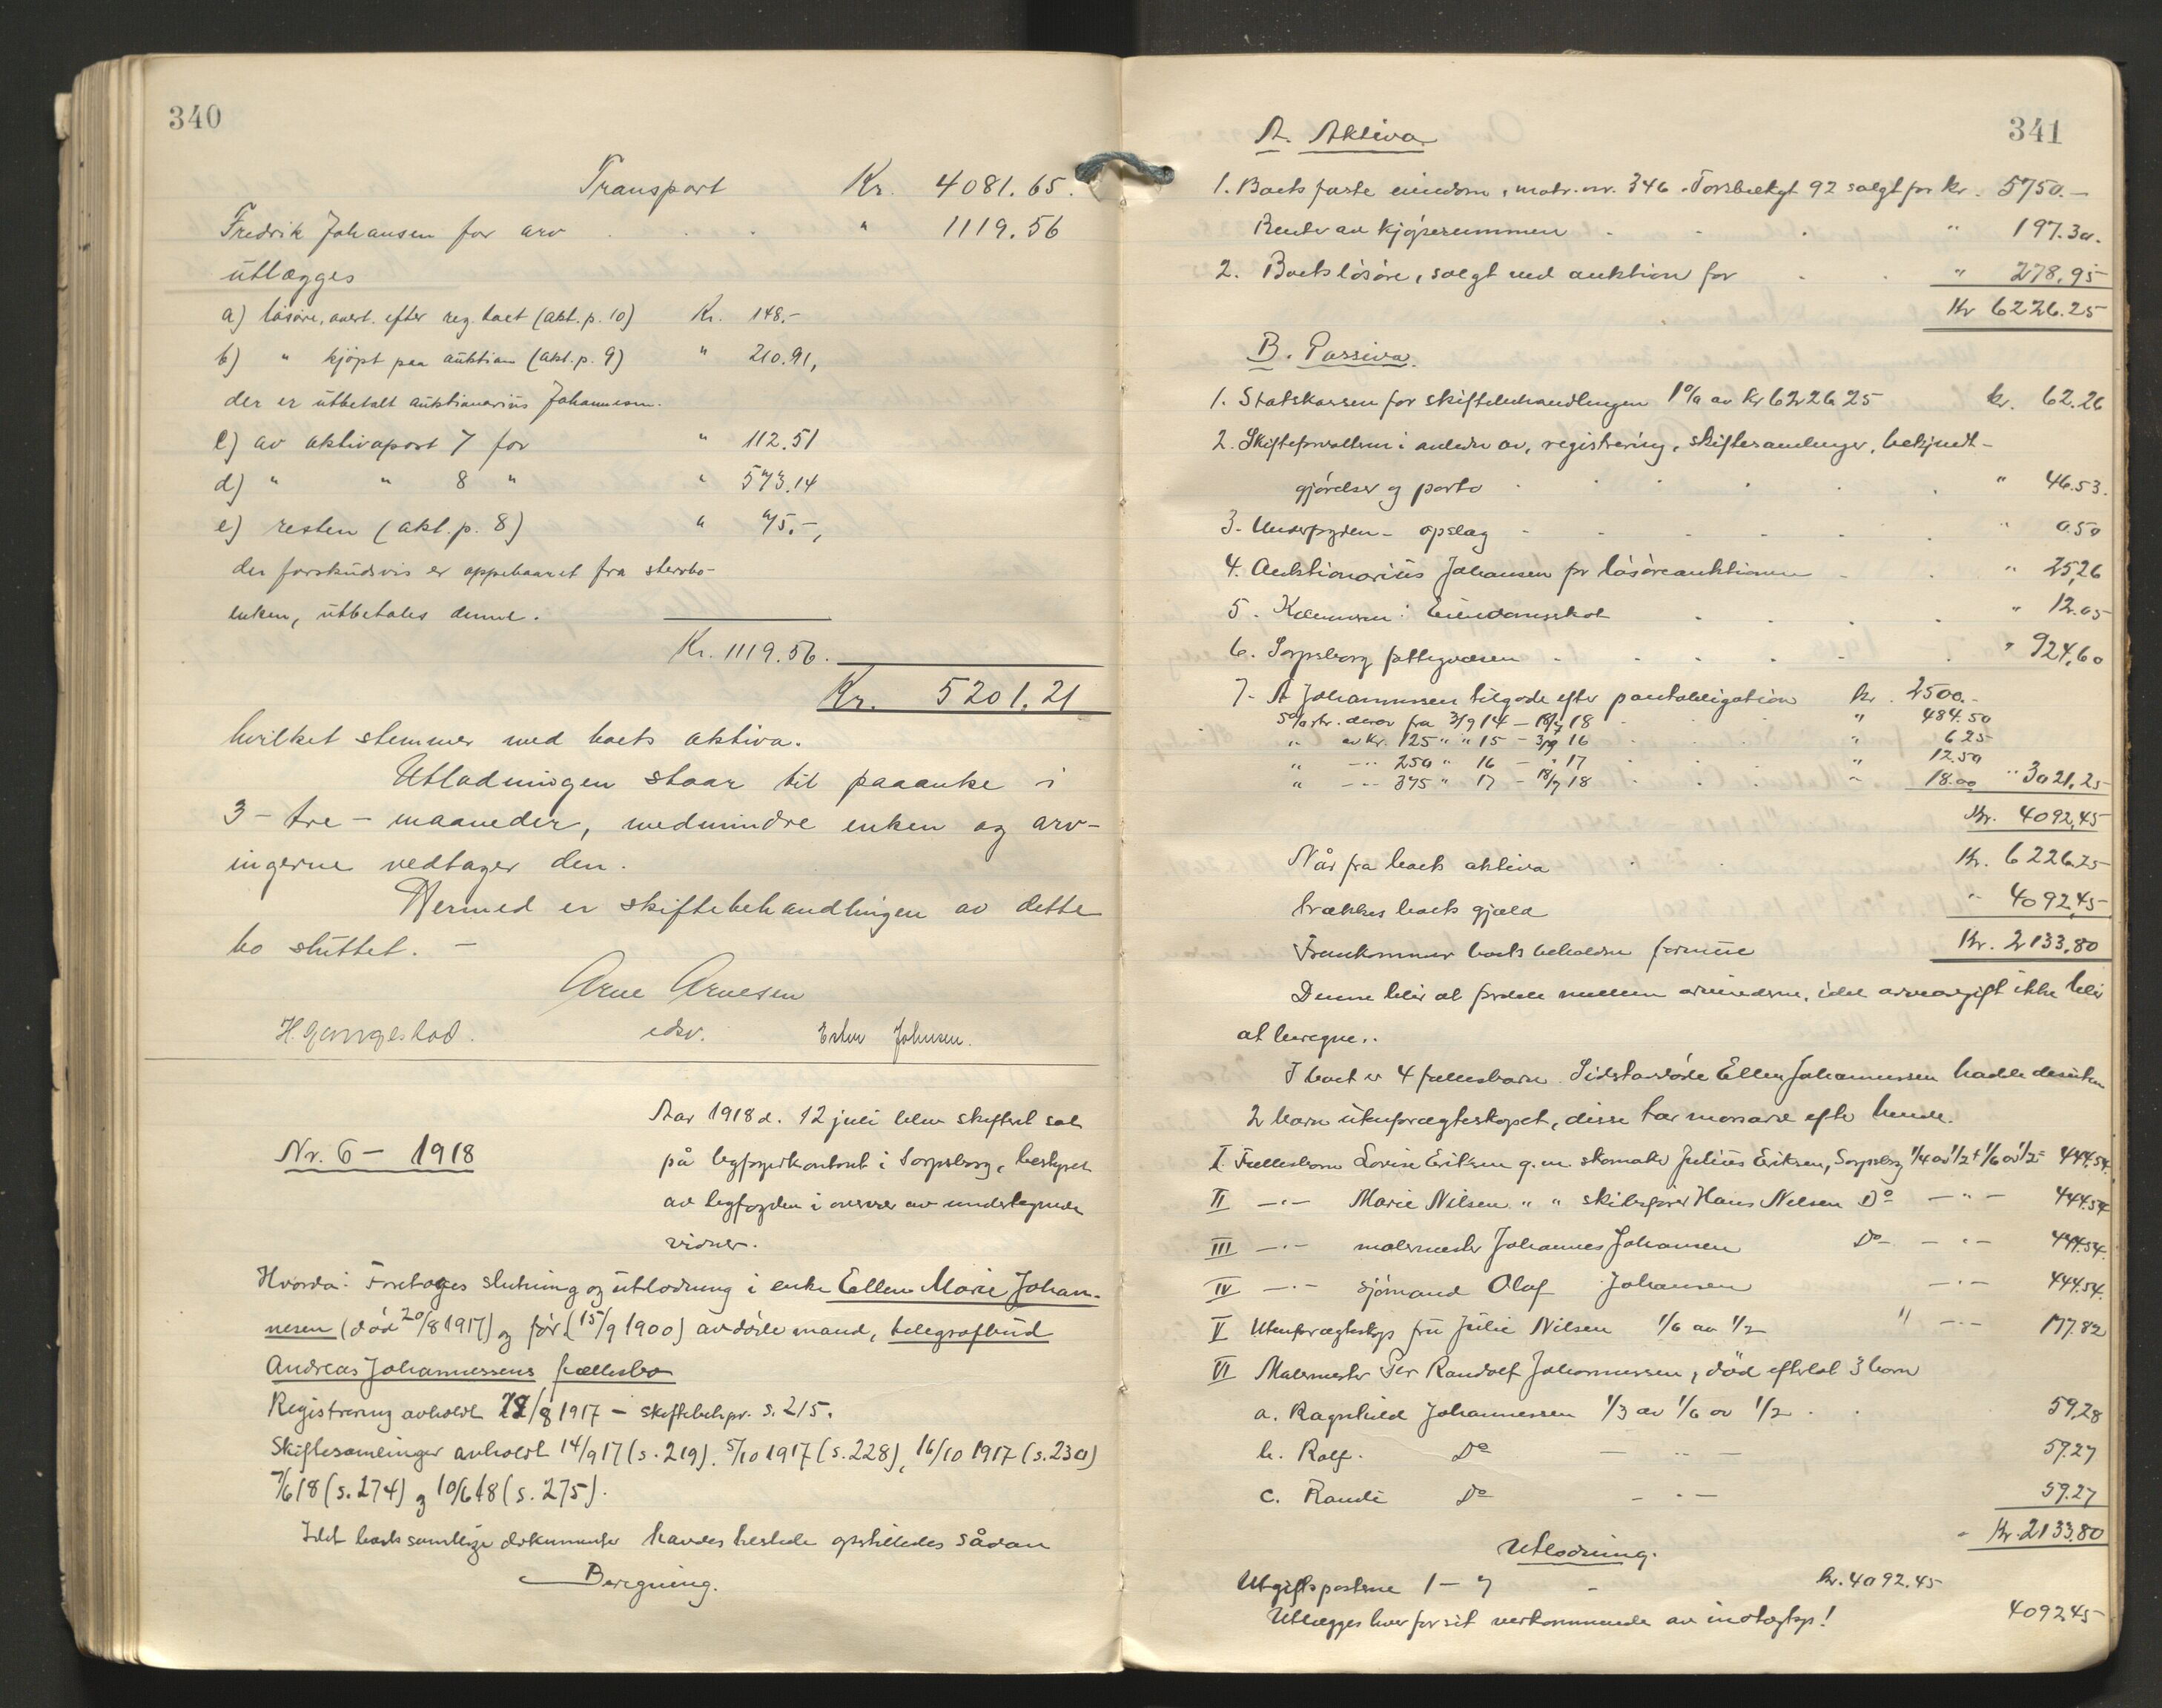 340
Transport Kr. 4081.65.
Fredrik Johansen for arv . . . " 1119.56
utlægges
a) løsøre, overt. efter reg. boet (akt. p. 10) Kr. 148.-
b) " kjøpt paa auktion (akt. p. 9) " 210.91,
der er utbetalt auktionarius Johannesen.
c) av aktivapost 7 for " 112.51
d) " " 8 " " 573.14
e) resten (akt. p. 8) " 75.-,
der forskudsvis er oppebaaret fra stervbo-
enken, utbetales denne.
Kr. 1119.56.
Kr. 5201.21
hvilket stemmer med boets aktiva.
Utlodningen staar til paaanke i
3 - tre - maaneder, medmindre enken og arv-
ingerne vedtager den.
Hermed er skiftebehandlingen av dette
bo sluttet. -
Arne Arnesen
H. Gjengestad. edsv. Ester Johnsen.
Nr. 6 - 1918
Aar 1918 d. 12 juli blev skifteret sat
på byfogedkontoret i Sarpsborg, bestyret
av byfogden i overvær av undertegnede
vidner.
Hvorda: Foretages slutning og utlodning i enke Ellen Marie Johan-
nesen (død 20/8 1917) og før (15/9 1900) avdøde mand, telegrafbud
Andreas Johannessens fællesbo
Registrering avholdt /8 1917 - skiftebeh.pr. s. 215.
Skiftesamlinger avholdt 14/9 17 (s. 219). 5/10 1917 (s. 228), 16/10 1917 (s. 230)
7/6 18 (s. 274) og 10/6 18 (s. 275).
Idet boets samtlige dokumenter havdes tilstede opstilledes sådan
Beregning.
341
A. Aktiva
1. Boets faste eiendom, matr. nr. 346 Torsbekgt 92 solgt for kr. 5750.-
Renter av kjøpesummen . . . " 197.30.
2. Boets løsøre, solgt ved auktion for . . " 278,95
Kr 6226.25
B. Passiva.
1. Statskassen for skiftebehandlingen 1% av Kr 6226 25 kr. 62.26
2. Skifteforvalteren i anledn av, registrering, skiftesamlinger, bekjendt-
gjørelser og porto . . . . . " 46.53.
3. Underfogden - opslag - . . . . " 0.50
4. Auktionarius Johansen for løsøreauktionen . . " 25,26
5. Kæmneren: Eiendomsskat . . . " 12.05
6. Sarpsborg fattigvæsen . . . . . " 924,60
7. A Johannessen tilgode efter pantobligation kr. 2500.-
5% rtr. derav fra 3/9 14 - 18/7 18 " 484.50
" av kr. 125 " " 15 - 3/9 16 . . " 6 25
" -"- 250 " 16 - " 17 " 12.50
" -"- 375 " 17 - 18/7 18 . . " 18.00 " 3021,25
Kr. 4092,45
Når fra boets aktiva . . Kr. 6226.25
trækkes boets gjæld " 4092,45
Fremkommer boets beholdne formue Kr. 2133,80
Denne blir at fordele mellem arvingerne, idet arveavgift ikke blir
at beregne..
I boet er 4 fællesbarn. Sidstavdøde Ellen Johannessen hadde desuten
2 barn utenfor ægteskapet, disse tar morsarv efter hende.
I. Fællesbarn Lovise Eriksen g. m. skomaker Julius Eriksen, Sarpsborg 1/4 av 1/2 + 1/6 av 1/2 = 444,54.
II -"- Marie Nilsen " " skibsfører Hans Nilsen Do -"- 444.54
III -"- malermester Johannes Johansen Do -"- 444.54.
IV -"- sjömand Olaf Johansen -"- 444.54.
V Utenforegteskaps fru Julie Nilsen 1/6 av 1/2 " -"- 177.82
VI Malermester Per Randolf Johannessen, död efterlot 3 barn
a. Ragnhild Johannessen 1/3 av 1/6 av 1/2 . . 59,28
b. Rolf. Do - " - 59.27
c. Randi Do - " - 59.27
Kr. 2133,80
Utlodning.
Utgiftsposterne 1 - 7 - kr. 4092.45
Utlægges hver for sit vedkommende av indtægtsp! 4092,45